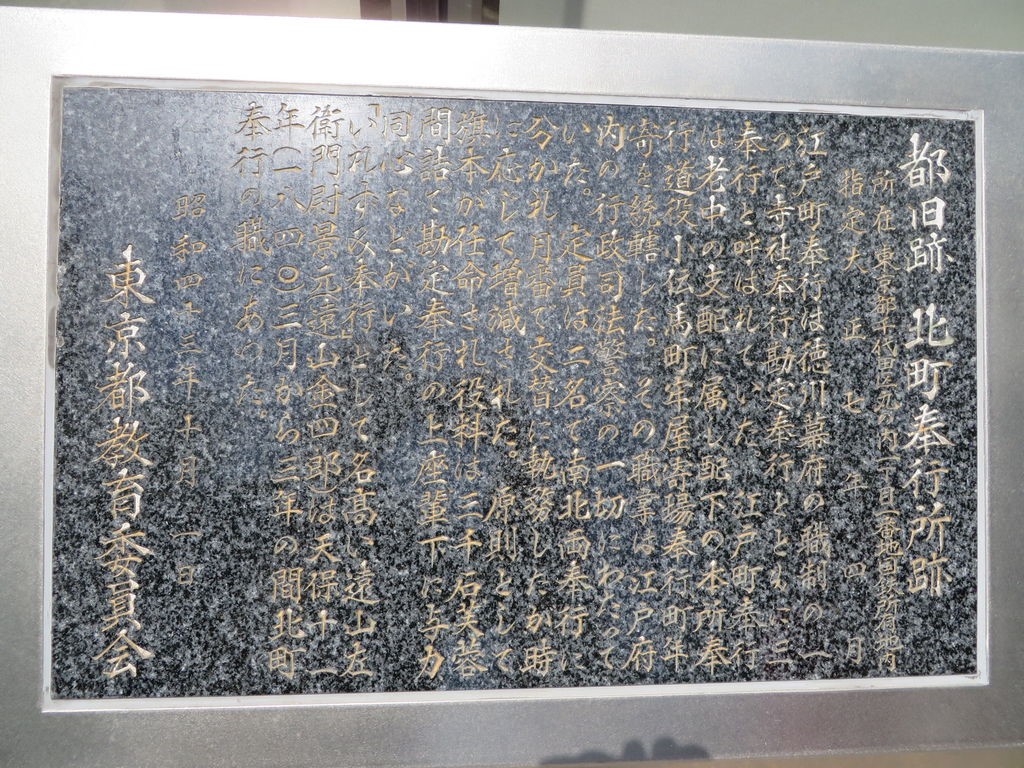 都旧跡 北町奉行所跡
所在 東京都千代田区丸の内一丁目一番地国鉄所有地内
指定 大正七年四月
江戸町奉行は徳川幕府の職制の一
つで寺社奉行勘定奉行とともに三
奉行と呼ばれていた 江戸町奉行
は老中の支配に属し配下の本所奉
行道役小伝馬町牢屋寄場奉行町年
寄を統轄した。その職掌は江戸府
内の行政司法警察の一切にわたって
いた。定員は二名で南北両奉行に
分かれ月番で交替に執務したが時
に応じて増減された。原則として
旗本が任命され役料は三千石芙蓉
間詰で勘定奉行の上座輩下に与力
同心などがいた。
「いれずみ奉行」として名高い遠山左
衛門尉景元(遠山金四郎)は天保十一
年(一八四〇)三月から三年の間北町
奉行の職にあった。
昭和四十三年十月一日
東京都教育委員会